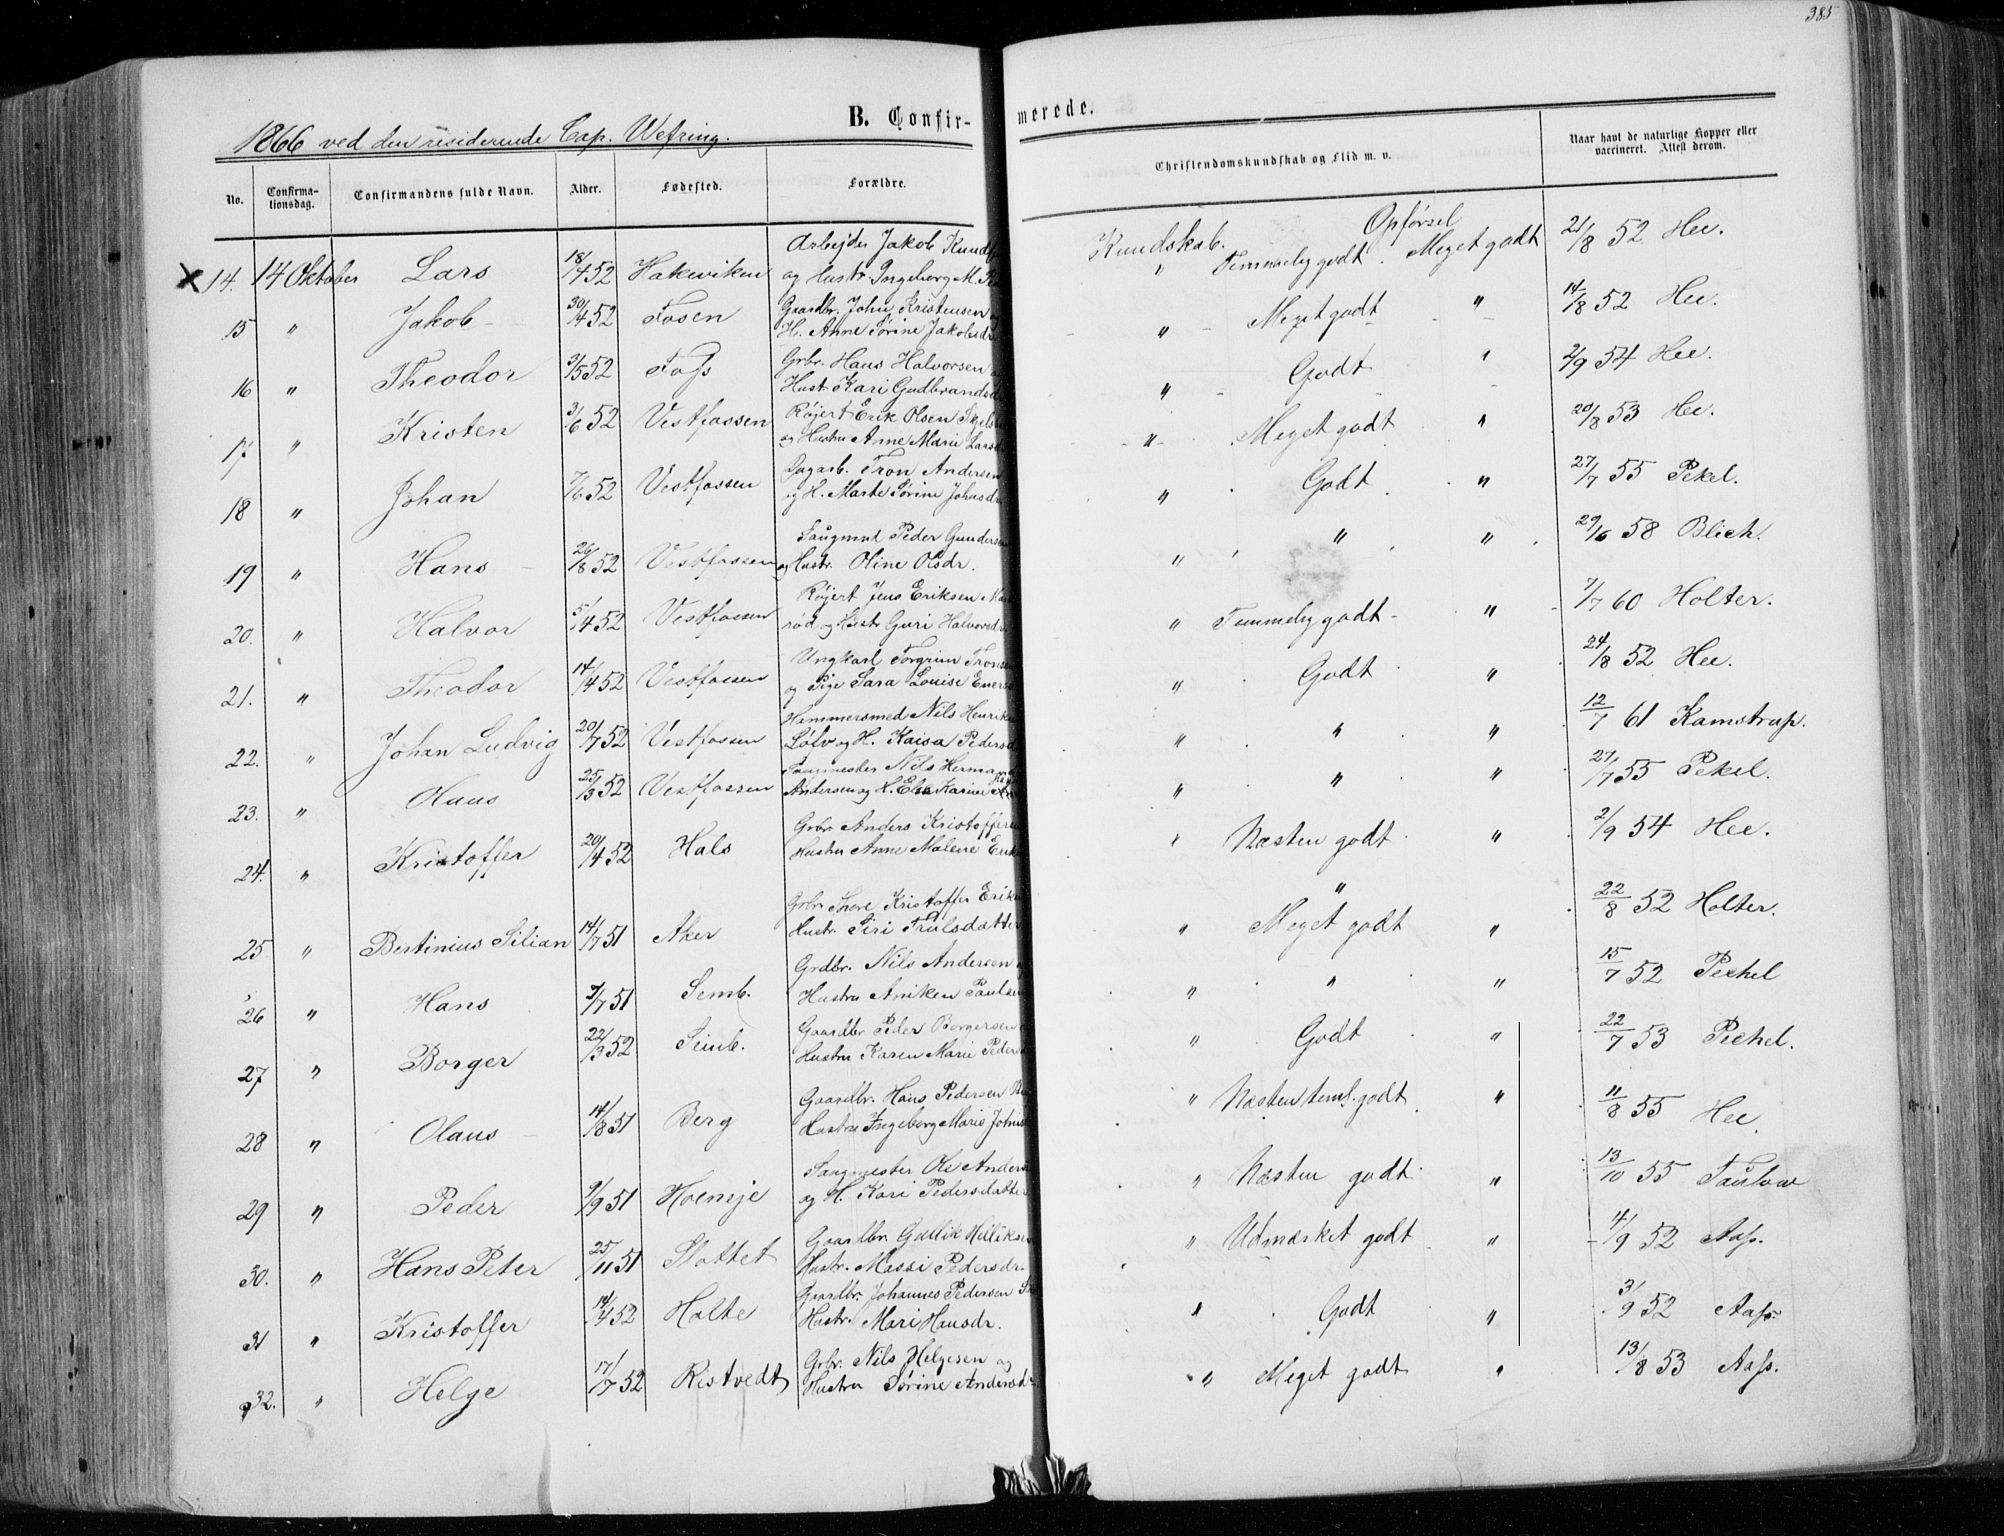 385
B. Confirmerede.
1866 ved den residerende Cap. Wefring.
No. Confirmationsdag. Confirmandens fulde Navn. Alder. Fødested. Forældre. Christendomskundskab og Flid m. v. Naar havt de naturlige Kopper eller vaccineret. Attest derom.
Kundskab. Opførsel
14. 14 Oktober Lars 18/4 52 Hakaviken Arbejder Jakob og Hustr. Ingeborg M. " Temmelig godt. Meget godt 21/8 52 Hee.
15 " Jakob 30/4 52 Fosen Gaardbr. John Kristensen og H. Anne Sørine Jakobsdr " Meget godt " 14/8 52 Hee.
16 " Theodor 3/5 52 Foss Grbr. Hans Halvorsen Hustr. Kari Gudbrandsd " Godt " 2/9 54 Hee.
17 " Kristen 3/6 52 Vestfossen Røjert Erik Olsen og Hustru Anne Marie Larsd " Meget godt " 20/8 53 Hee.
18 " Johan 7/6 52 Vestfossen Dagarb. Tron Andersen og H. Marte Sørine Johnsdr " Godt " 27/7 55 Pekel.
19 " Hans 26/8 52 Vestfossen Saugmnd Peder Gundersen og Hustr. Oline Olsdr. " " " 29/6 58 Blich.
20. " Halvor 5/4 52 Vestfossen Røjert Jens Eriksen rød og Hustr Guri Halvorsdr " Temmelig godt " 7/7 60 Holter.
21. " Theodor 14/4 52 Vestfossen Ungkarl Torgrim Tronsen og Pige Sara Louise " Godt " 24/8 52 Hee.
22. " Johan Ludvig 20/7 52 Vestfossen Hammersmed Nils Henrik Löfv og H. Kaisa Pedersd " " " 12/7 61 Kamstrup.
23. " Olaus 25/3 52 Vestfossen Saugmester Nils Herman Andersen og H. Else Karine " " " 27/7 55 Pekel.
24. " Kristoffer 20/4 52 Hals Grbr Anders Kristoffersen Hustru Anne Malene Erik " Næsten godt " 2/9 54 Hee.
25 " Bertinius Silian 14/7 51 Aker Grbr. Kristoffer Erik Hustr. Siri Trulsdatter " Meget godt " 22/8 52 Holter.
26 " Hans 7/7 51 Semb. Grdbr. Nils Andersen Hustru Aniken Pauls " " " 15/7 52 Pechel
27 " Borger 22/3 52 Semb. Gaardbr Peder Borgersen Hustru Karen Marie Peders " Godt " 22/7 53 Pechel.
28 " Olaus 14/8 51 Berg Gaardbr. Hans Pedersen Hustru Ingeborg Marie Johns " Næsten teml. godt " 11/8 55 Hee.
29 " Peder 9/9 51 Hoensje Saugmester Ole Anders og H. Kari Pedersdatter " Næsten godt " 13/10 55 Taulow
30. " Hans Peter 25/11 51 Slottet Gaardbr. Gullik Helliksen Hustr. Massi Pedersdr. " Udmærket godt " 4/9 52 Aass.
31 " Kristoffer 14/4 52 Holte Gaardbr. Johannes Pedersen Hustr. Mari Hansdr. " Godt " 3/9 52 Aass.
32. " Helge 17/7 52 Ristvedt Grbr. Nils Helgesen og Hustru Sørine Andersd " Meget godt " 13/8 53 Aass.